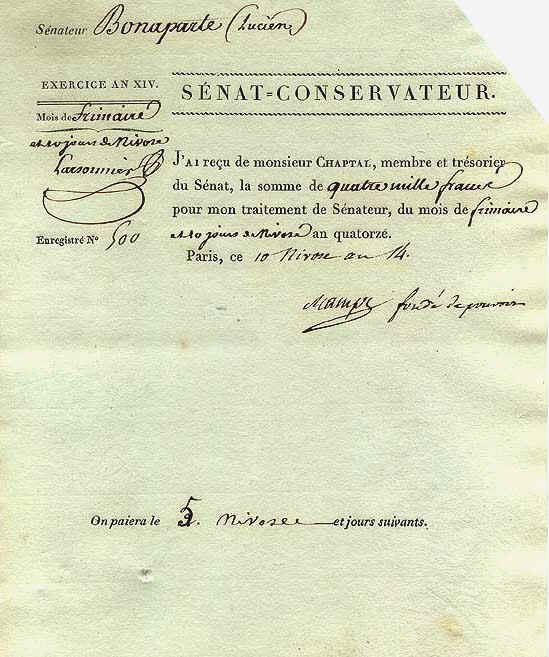 Sénateur Bonaparte (Lucien)
EXERCICE AN XIV.
Mois de frimaire
et 10 jours de Nivose
Larsonnier
Enregistré N° 500
SÉNAT-CONSERVATEUR.
J'AI reçu de monsieur CHAPTAL, membre et trésorier
du Sénat, la somme de quatre mille francs
pour mon traitement de Sénateur, du mois de frimaire
et 10 jours de Nivose an quatorze.
Paris, ce 10 Nivose an 14.
fondé de pouvoir
On paiera le 5. Nivose et jours suivants.